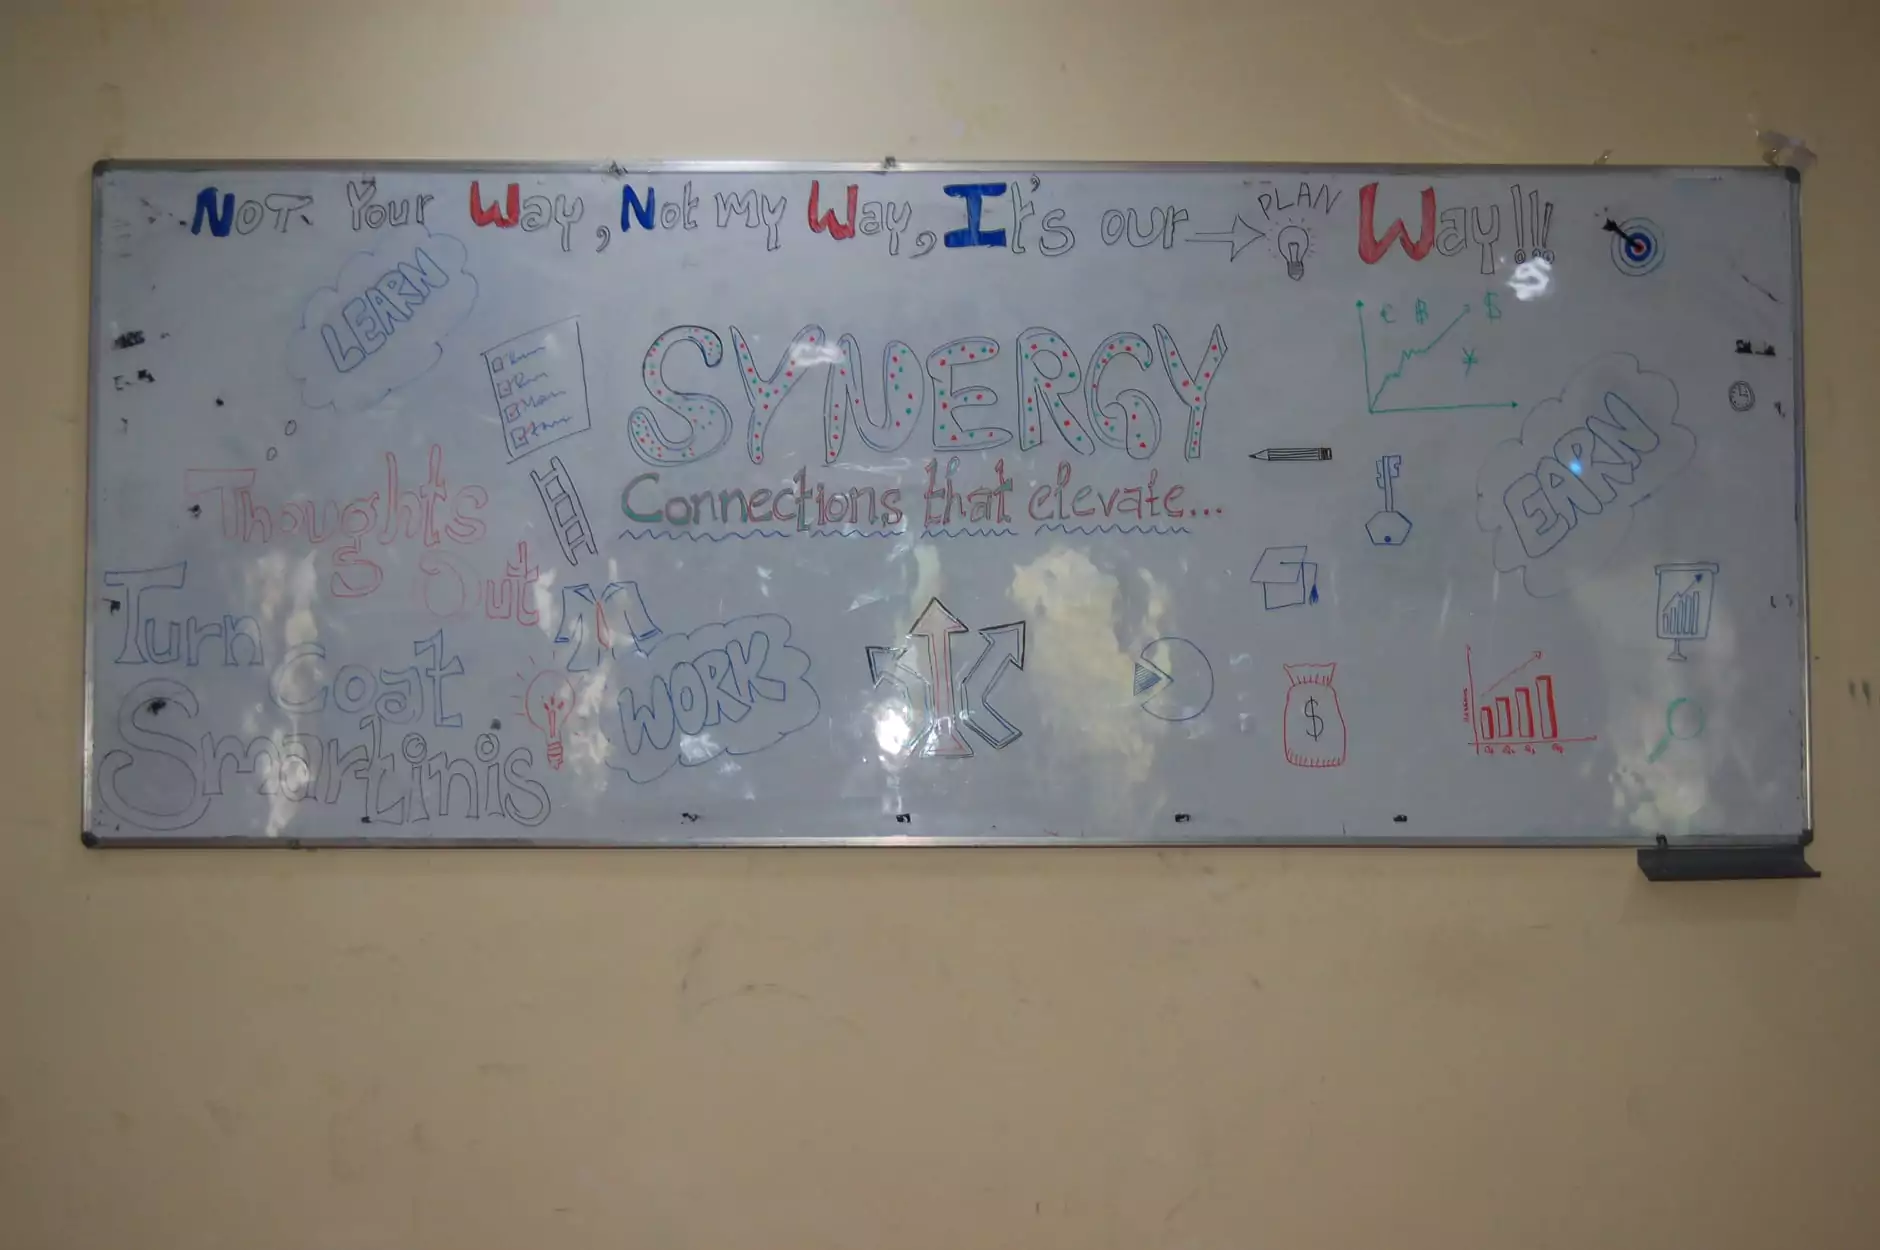 Not Your Way, Not my Way, It's our → PLAN Way!!!
LEARN
SYNERGY
Connections that elevate...
€ $
¥
EARN
Thoughts
Out
Turn
Coat
Smartinis
WORK
$